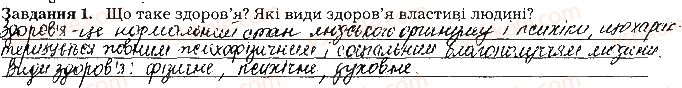 Завдання 1. Що таке здоров'я? Які види здоров'я властиві людині?
Здоров'я - це нормальний стан людського організму і психіки, що харак-
теризується повним психофізичним і соціальним благополуччям людини.
Види здоров'я: фізичне, психічне, духовне.